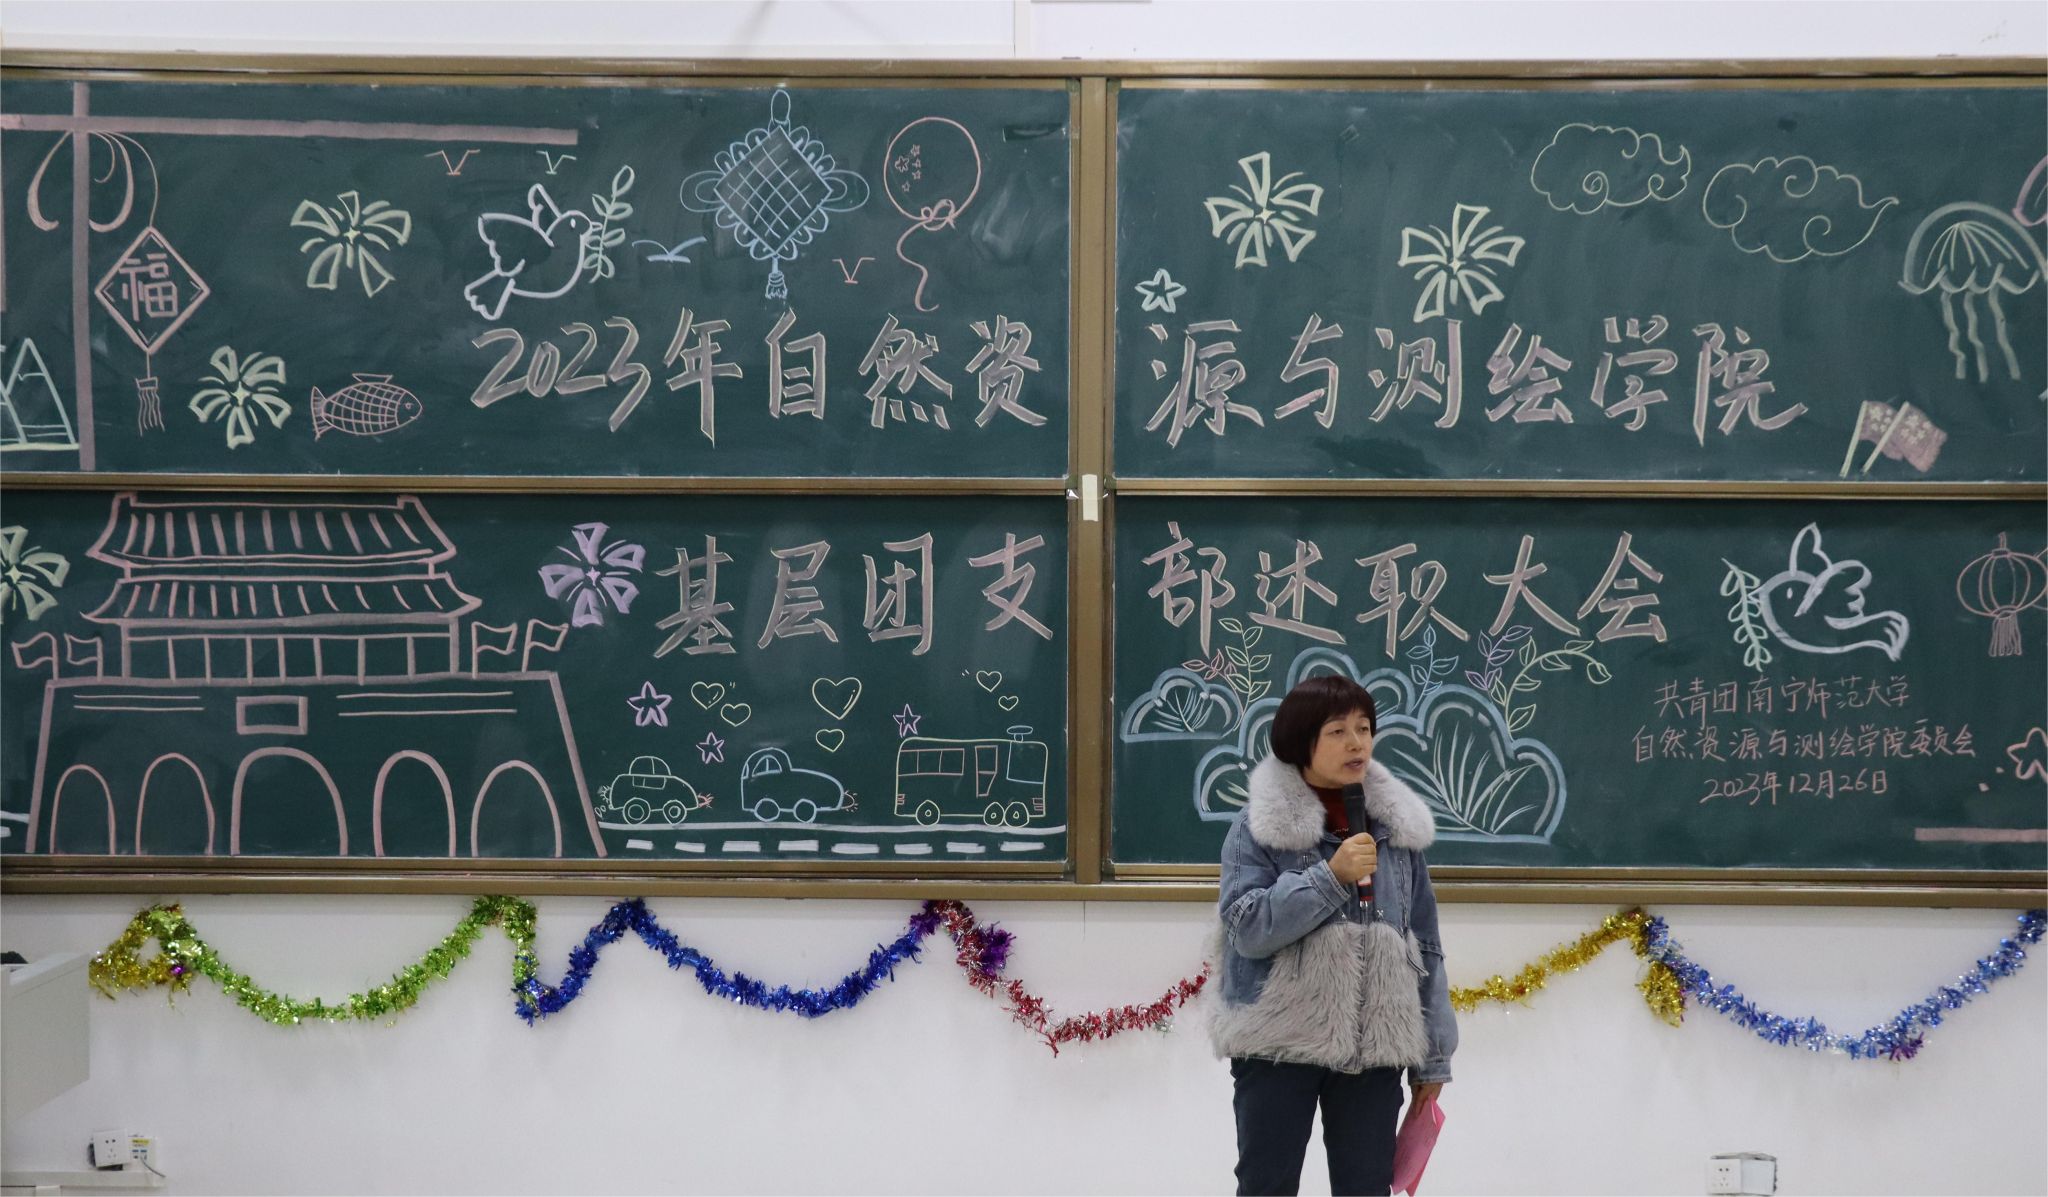 福
2023年自然资源与测绘学院
基层团支部述职大会
共青团南宁师范大学
自然资源与测绘学院委员会
2023年12月26日